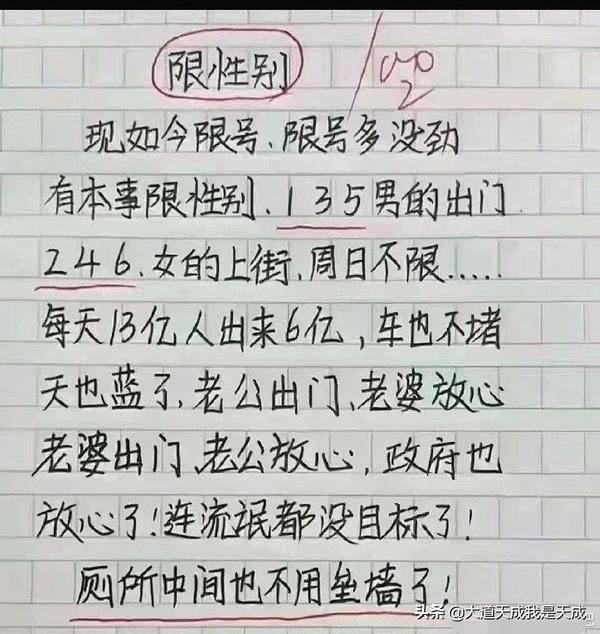 限性别
现如今限号、限号多没劲
有本事限性别、135男的出门
246、女的上街、周日不限.....
每天13亿人出来6亿，车也不堵
天也蓝了、老公出门、老婆放心
老婆出门、老公放心，政府也
放心了！连流氓都没目标了！
厕所中间也不用垒墙了！
头条 @大道天成我是天成